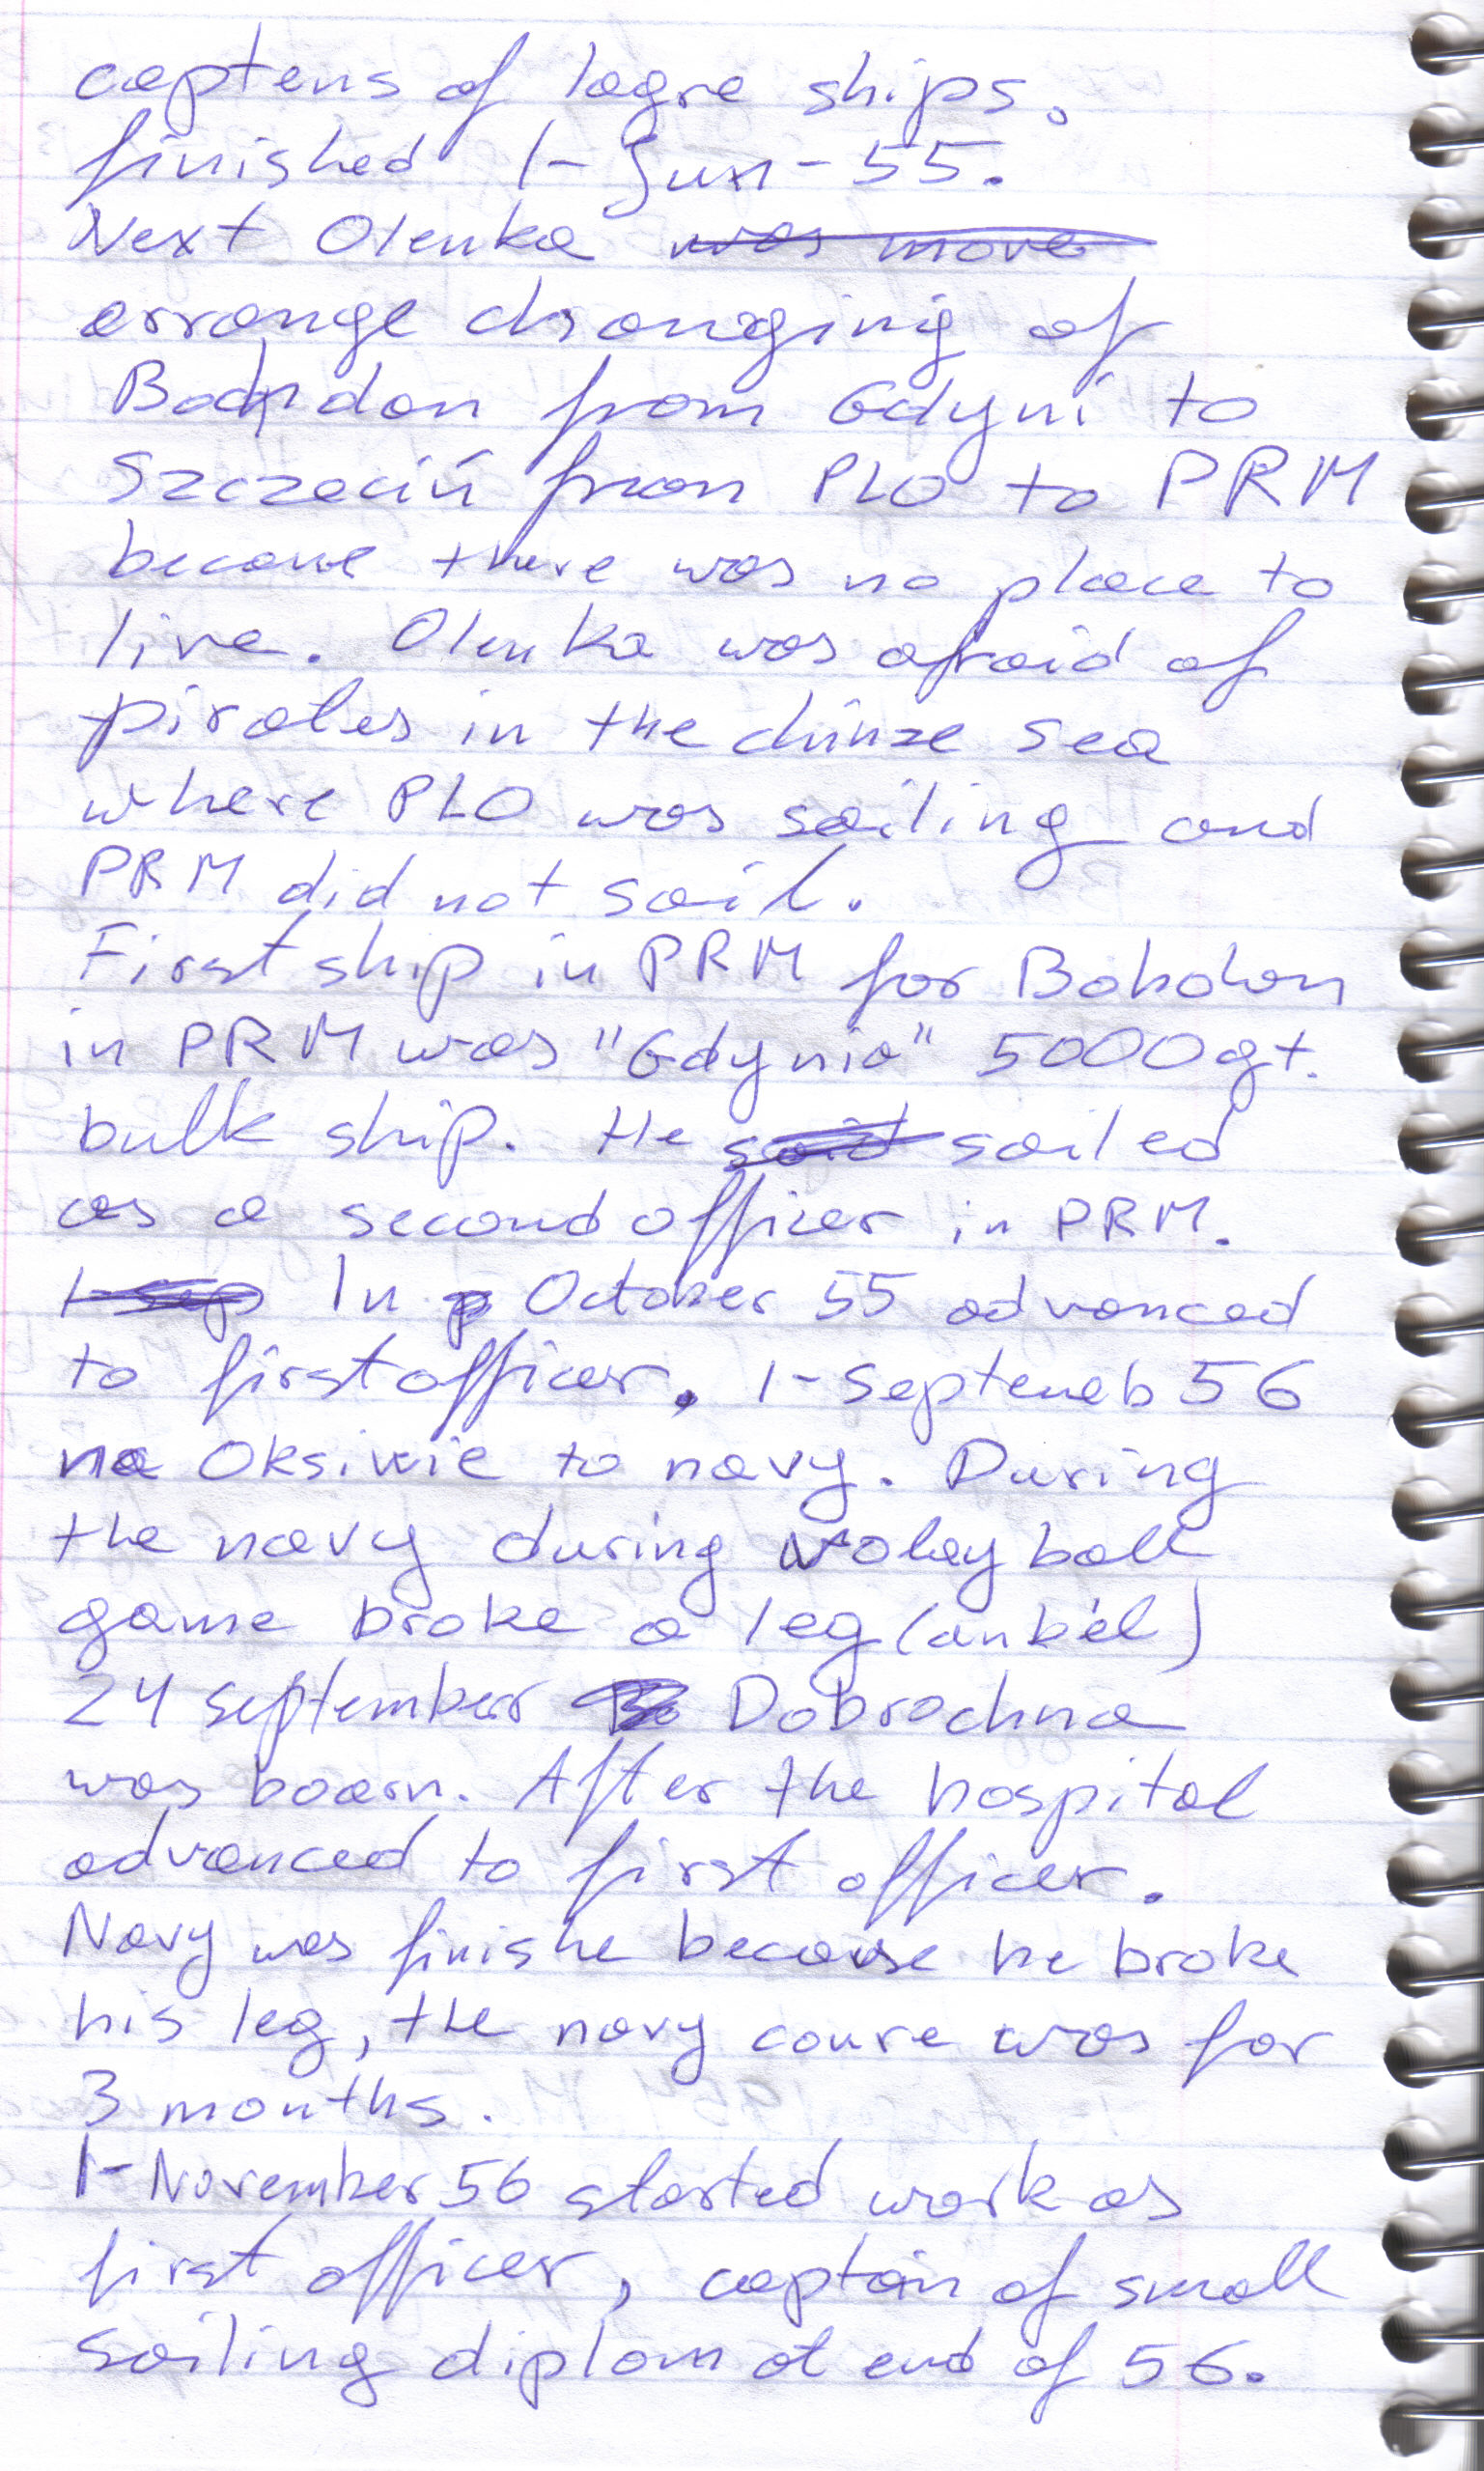 captens of lagre ships.
finished 1-Jun-55.
Next Olenka was move
arrange chsanging of
Bohdan from Gdyni to
Szczeciń from PLO to PRM
becaue there was no place to
live. Olenka was afraid of
pirates in the chinze sea
where PLO was sailing and
PRM did not sail.
First ship in PRM for Bohdan
in PRM was "Gdynia" 5000gt.
bulk ship. He said sailed
as a second officer in PRM.
1-sep In p October 55 advanced
to first officer. 1-Septemeb 56
na Oksiwie to navy. During
the navy during voleyball
game broke a leg (ankel)
24 september Dobrochna
was boarn. After the hospital
advanced to first officer.
Navy was finishe because he broke
his leg, the navy coure was for
3 months.
1-November 56 started work as
first officer, captain of small
sailing diplom at end of 56.